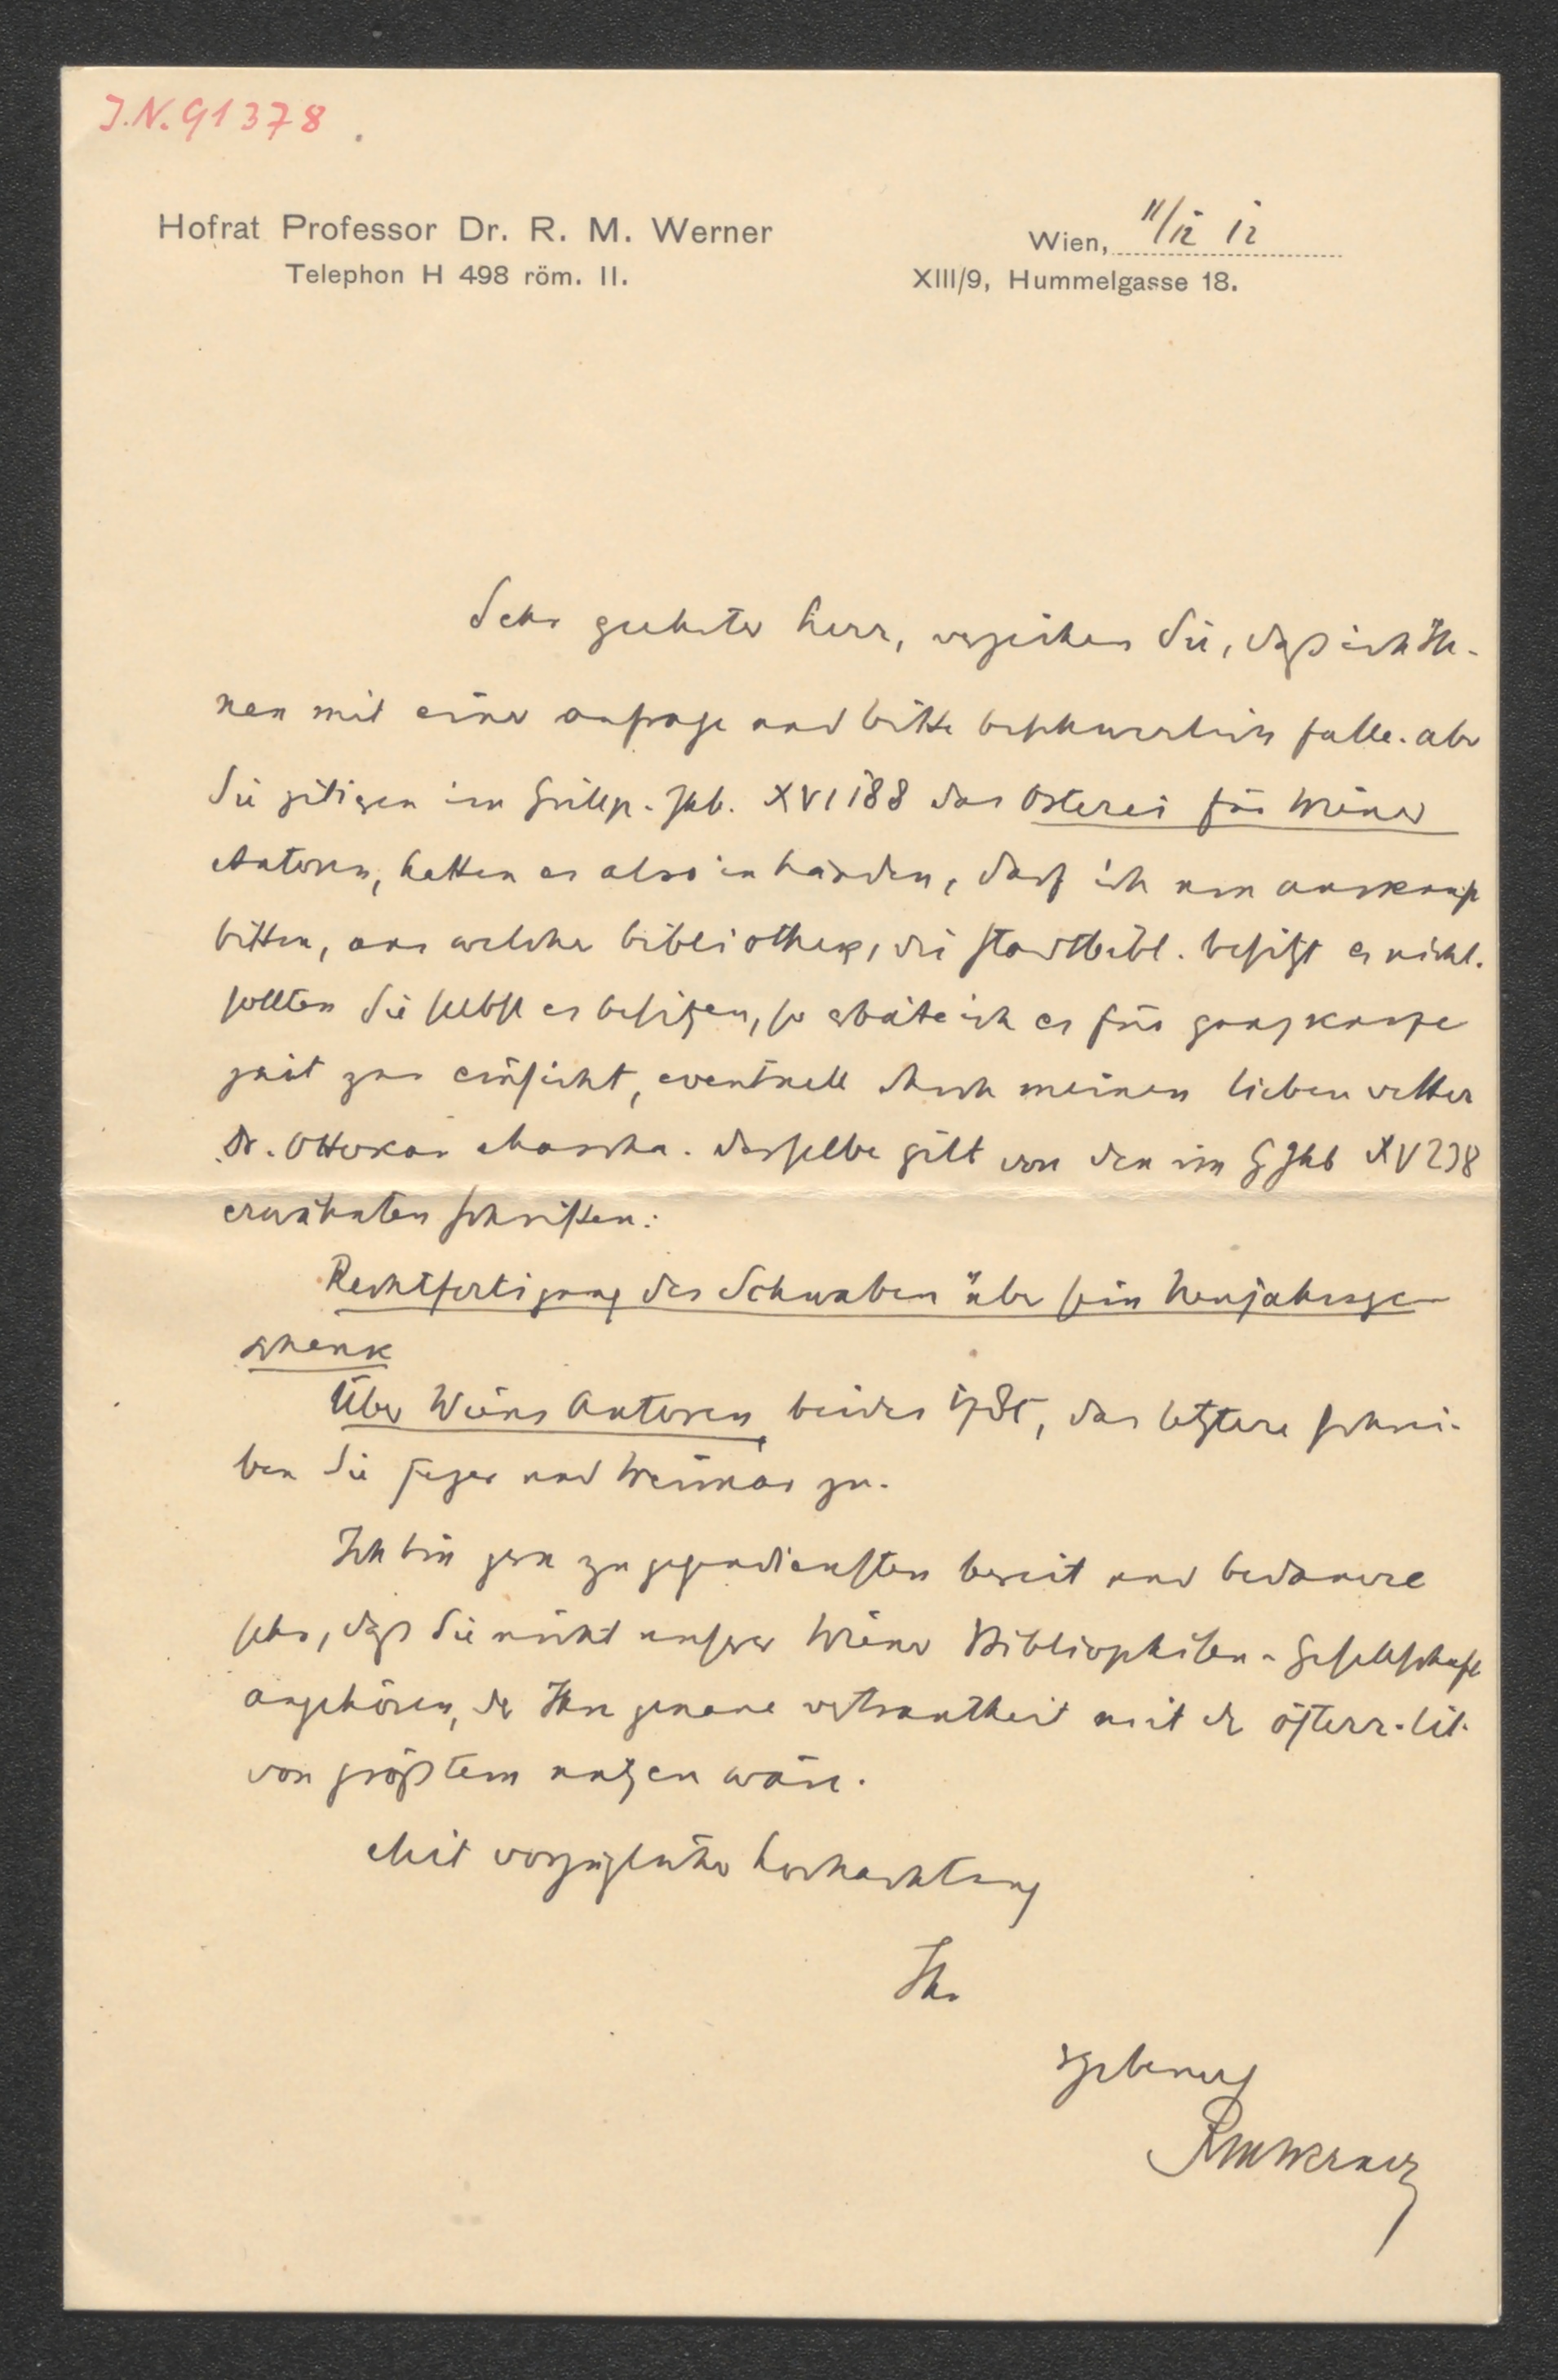 J.N. 91378
Hofrat Professor Dr. R. M. Werner
Telephon H 498 röm. II.
Wien, 11/12 12
XIII/9, Hummelgasse 18.
Sehr geehrter herr, verzeihen Sie, daß ich Ih-
nen mit einer anfrage und bitte beschwerlich falle. aber
Sie zitiren im Grillp. Jhb. XVI 188 das Osterei für Wiener
Autoren, hatten es also in händen, darf ich um auskunft
bitten, aus welcher bibliothek, die stadtbibl. besitzt es nicht.
sollten Sie selbst es besitzen, so erbäte ich es für ganz kurze
zeit zur einsicht, eventuell durch meinen lieben vetter
Dr. Ottokar Mascha. dasselbe gilt von den im GJhb XV 238
erwähnten schriften:
Rechtfertigung des Schwaben über sein Neujahrsge-
schenk
Über Wiens Autoren, beides 1785, das letztere schrei-
ben Sie Jezer und Weimar zu.
Ich bin gern zu gegendiensten bereit und bedauere
sehr, daß Sie nicht unserer Wiener Bibliophilen-Gesellschaft
angehören, der Ihre genaue vertrautheit mit der österr. lit.
von größtem nutzen wäre.
Mit vorzüglicher hochachtung
Ihr
ergebenster
RMWerner